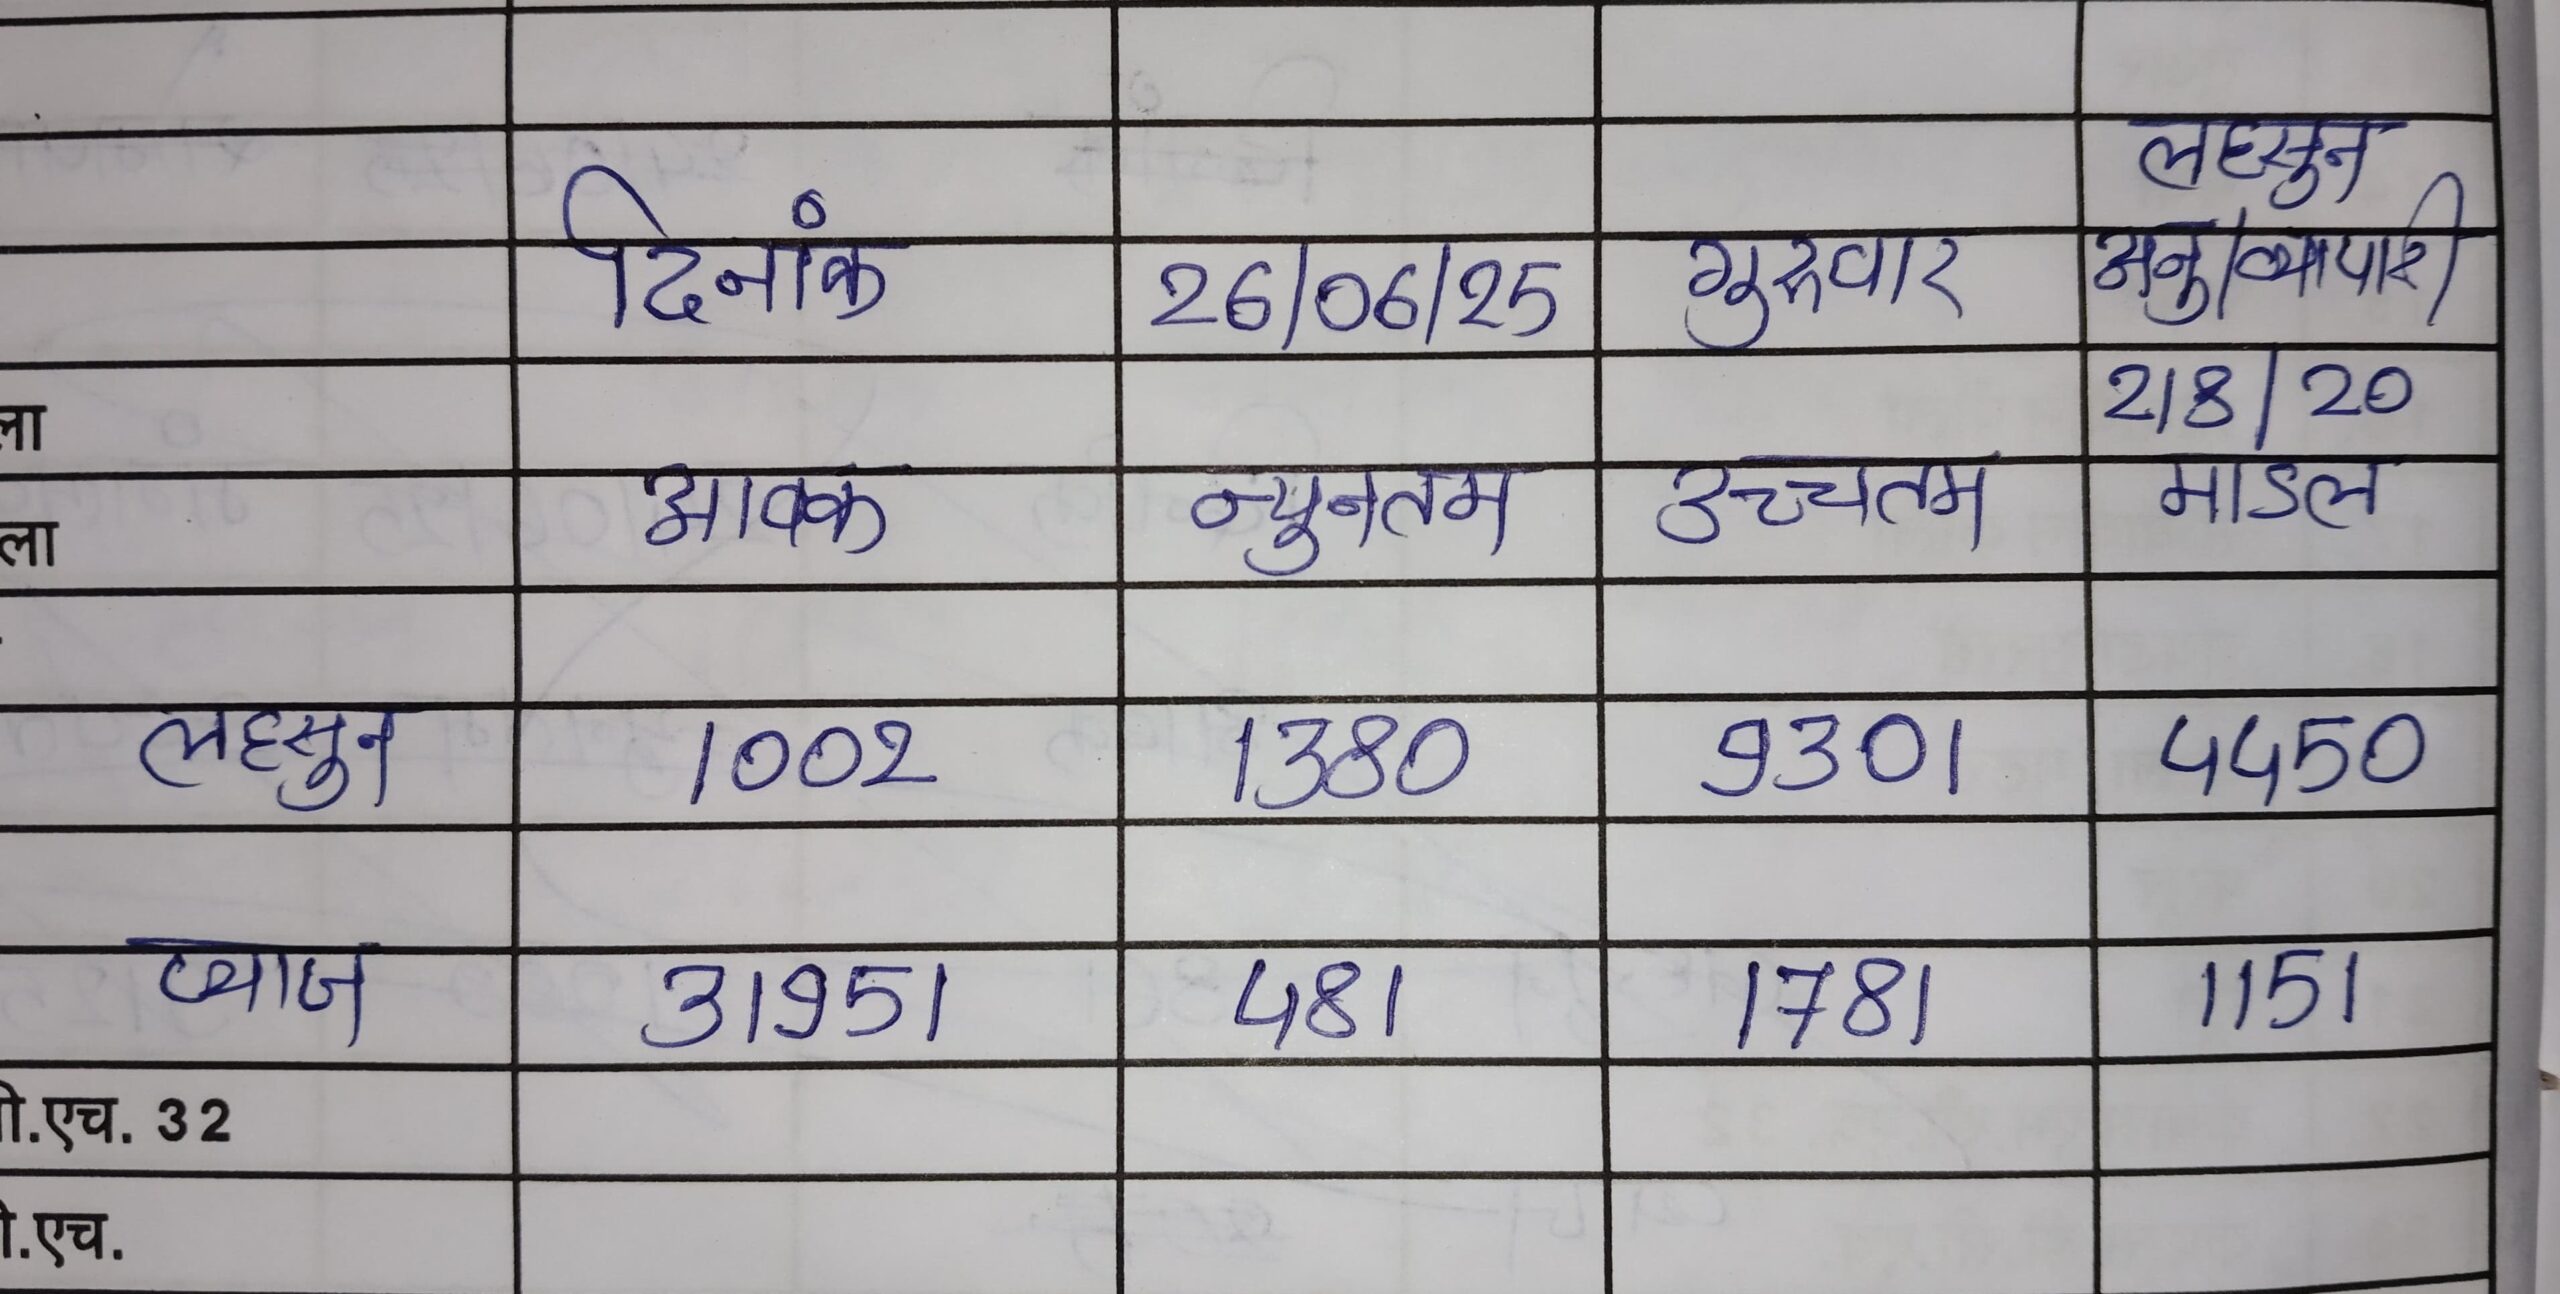 लहसुन
दिनांक 26/06/25 गुरुवार अनु/व्यापारी
ला 218/20
ला आवक न्युनतम उच्चतम माडल
लहसुन 1002 1380 9301 4450
प्याज 31951 481 1781 1151
ी.एच. 32
ी.एच.